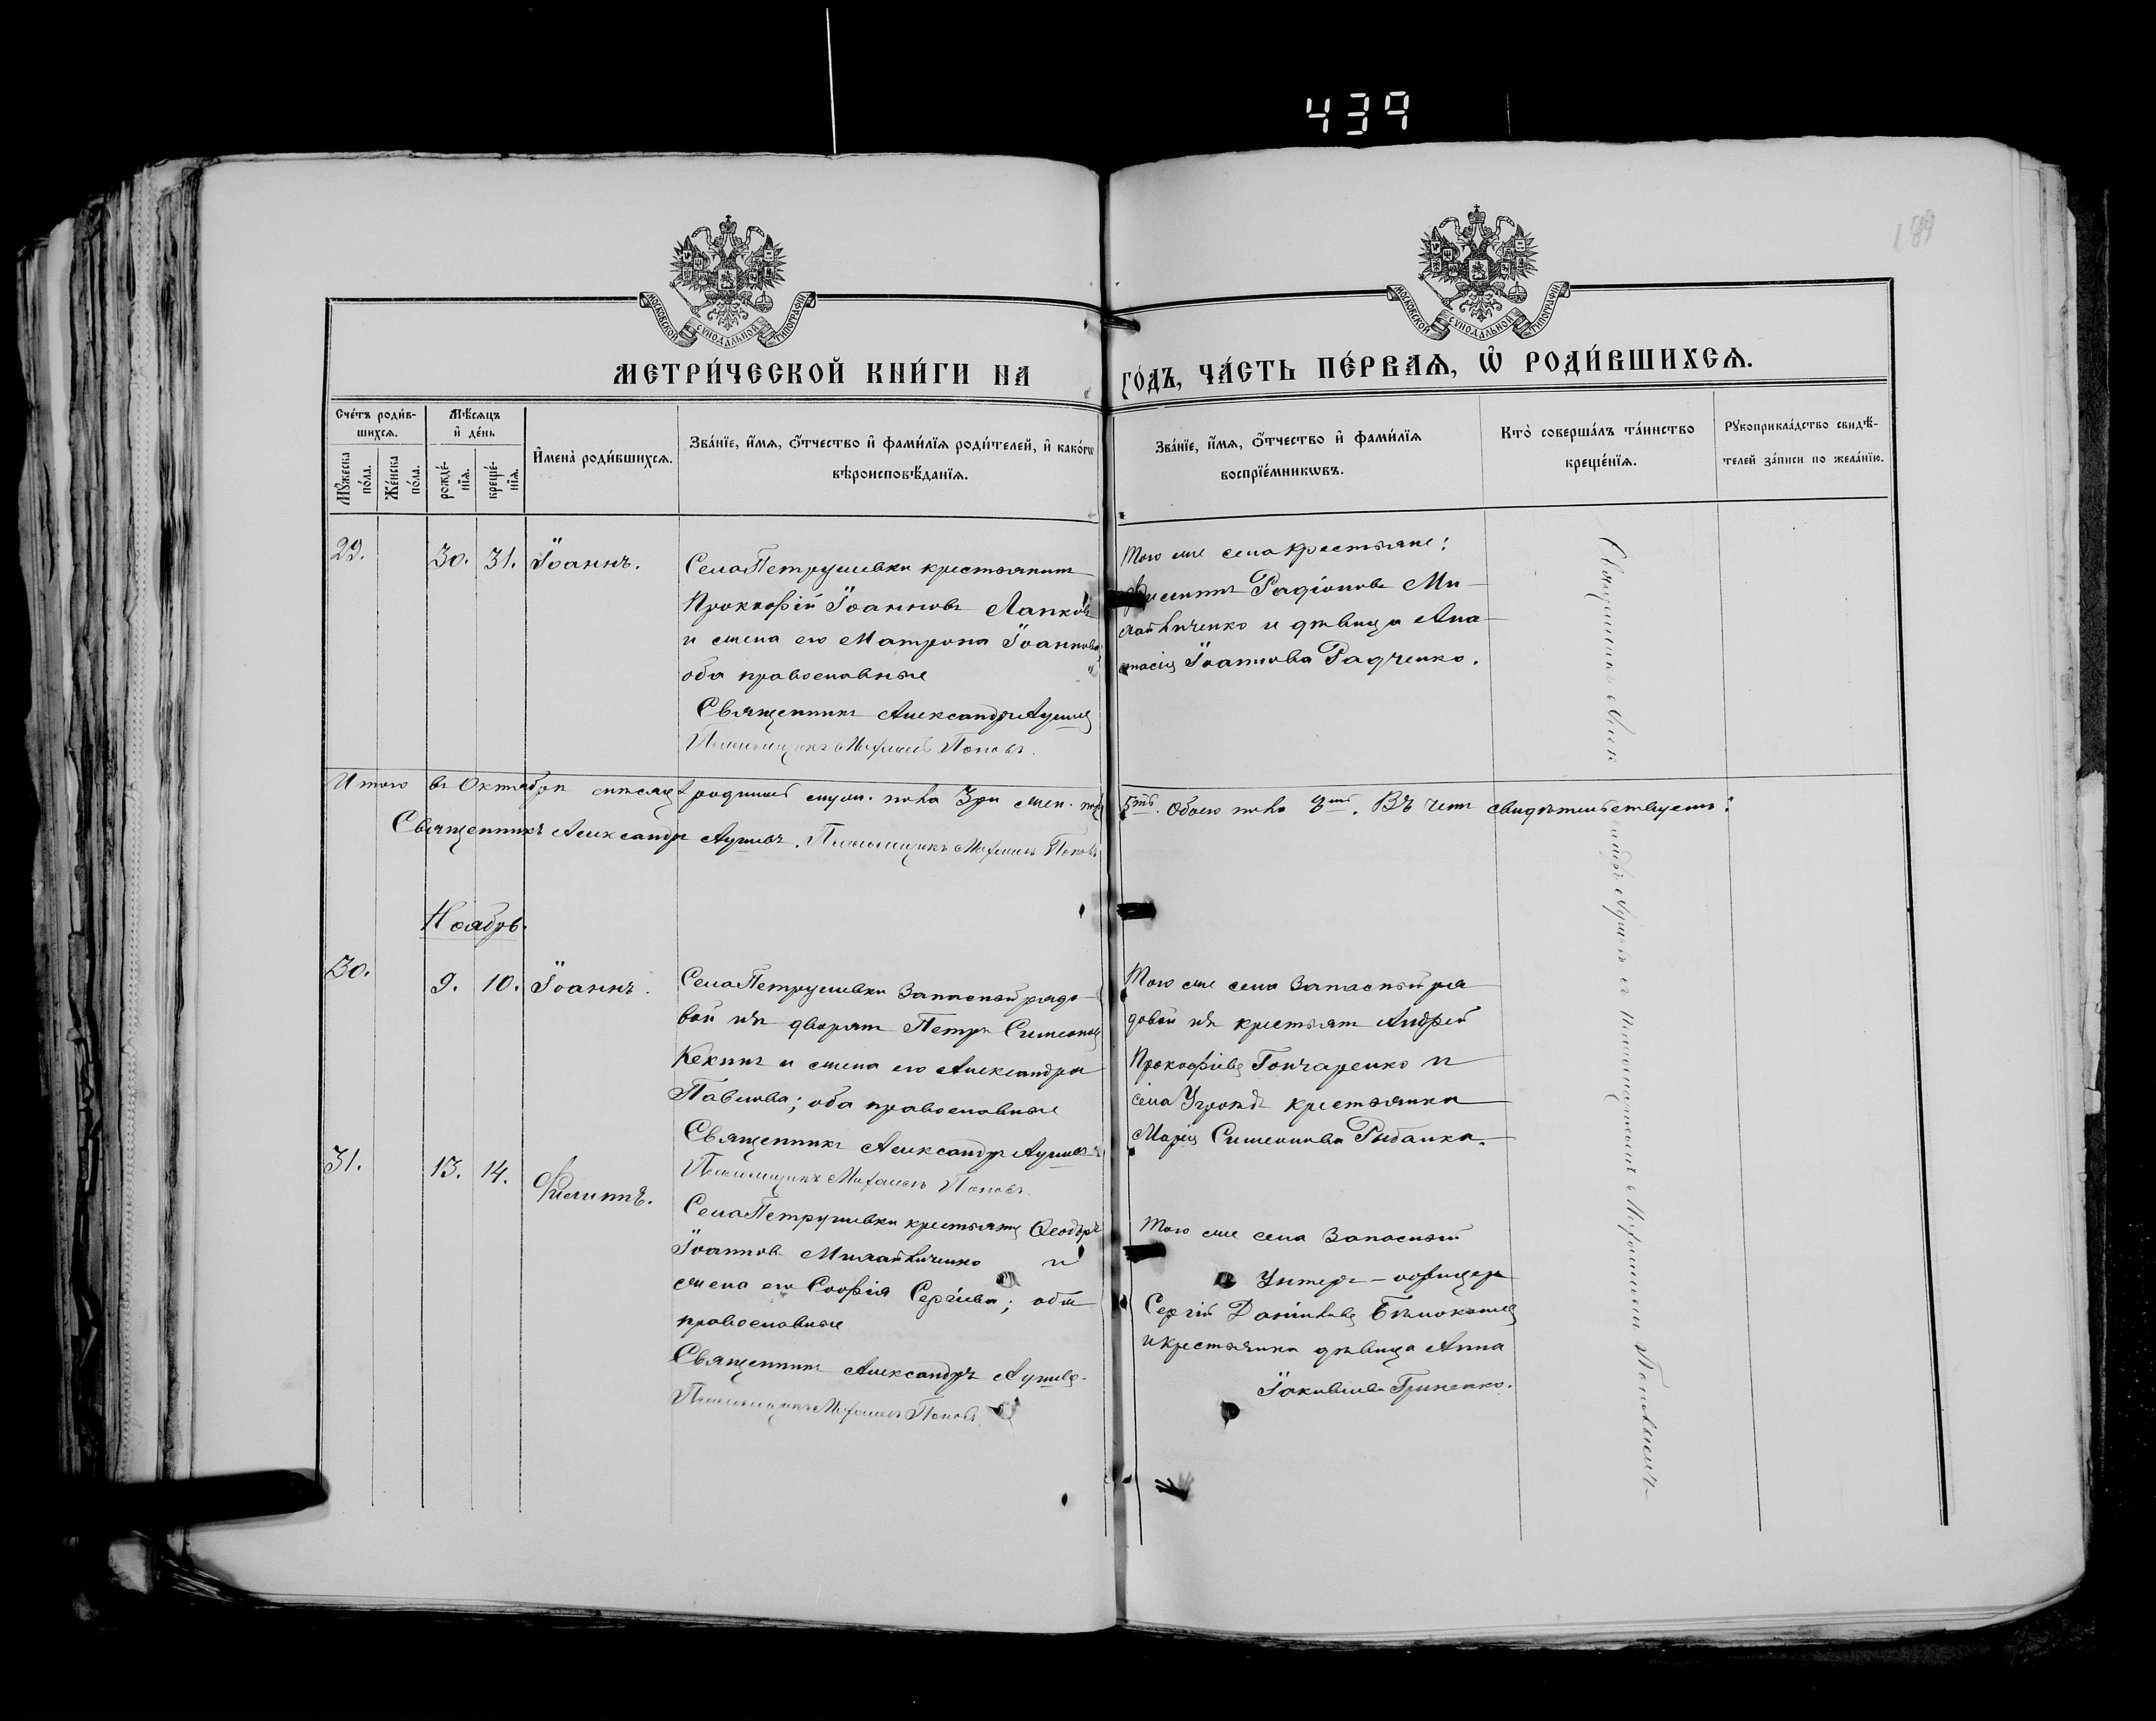 439
189
МОСКОВСКОЙ СѴНОДАЛЬНОЙ ТИПОГРАФІИ
МОСКОВСКОЙ СѴНОДАЛЬНОЙ ТИПОГРАФІИ
МЕТРИ́ЧЕСКОЙ КНИ́ГИ НА
ГО́ДЪ, ЧА́СТЬ ПЕ́РВАѦ, Ѡ҆ РОДИ́ВШИХСѦ.
Сче́тъ роди́вшихсѧ.
Мꙋ́жеска по́ла.
Же́нска по́ла.
Мѣ́сѧцъ и҆ де́нь
рожде́нїѧ.
креще́нїѧ.
И҆мена̀ роди́вшихсѧ.
Зва́нїе, и҆́мѧ, ѻ҆́тчество и҆ фами́лїѧ роди́телей, и҆ како́гѡ
вѣроисповѣ́данїѧ.
Зва́нїе, и҆́мѧ, ѻ҆́тчество и҆ фами́лїѧ
воспрїе́мникѡвъ.
Кто̀ соверша́лъ та́инство
креще́нїѧ.
Рꙋкоприкла́дство свидѣ́-
телей за́писи по жела́нїю.
29. 30. 31. Іоаннъ.
Села Петрушевки крестьянинъ
Прокофій Іоанновъ Лапковъ
и жена его Матрона Іоаннова
оба православные
Священникъ Александръ
Псаломщикъ Михаилъ Поповъ.
Того же села крестьяне:
Филиппъ Радіоновъ Ми-
хайличенко и дѣвица Ана
стасія Іоаннова Радченко.
Итого въ Октябрѣ мѣсяцѣ родилось муж. пола 3ри жен. пола
5ть. Обоего пола 8мь. Въ чемъ свидѣтельствуемъ:
Священникъ Александръ Псаломщикъ Михаилъ Поповъ
Ноябрь.
30. 9. 10. Іоаннъ.
Села Петрушевки Запасный рядо-
вой изъ дворянъ Петръ Симеоновъ
Кекинъ и жена его Александра
Павлова; оба православные
Священникъ Александръ
Псаломщикъ Михаилъ Поповъ.
Того же села Запасный ря
довой изъ крестьянъ Андрей
Прокофіевъ Гончаренко и
села крестьянка
Марія Симеонова Рыбалка.
31. 13. 14. Филиппъ.
Села Петрушевки крестьянинъ Ѳеодоръ
Іоанновъ Михайличенко и
жена его Софія Сергіева; оба
православные
Священникъ Александръ
Псаломщикъ Михаилъ Поповъ.
Того же села Запасный
Унтеръ-офицеръ
Сергій Даніиловъ
и крестьянка дѣвица Анна
Іаковлева Гриненко.
Священникъ Александръ съ Псаломщикомъ Михаиломъ